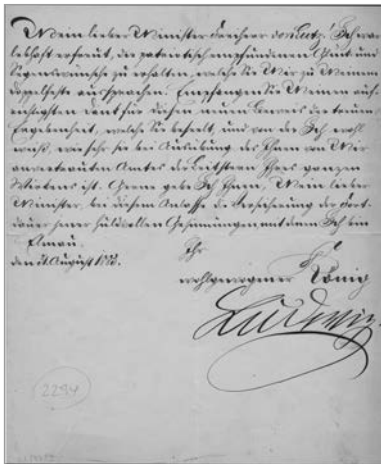 Mein lieber Minister Freiherr von Lutz! Ich war
lebhaft erfreut, die patriotisch empfundenen Glück und
Segenswünsche zu erhalten, welche Sie Mir zu Meinem
Doppelfeste aussprachen. Empfangen Sie Meinen auf-
richtigsten Dank für diesen neuen Beweis der treuen
Ergebenheit, welche Sie beseelt, und von der Ich wohl
weiß, wie sehr sie bei Ausübung des Ihnen von Mir
anvertrauten Amtes der Leitstern Ihres ganzen
Wirkens ist. Gerne gebe Ich Ihnen, Mein lieber
Minister, bei diesem Anlasse die Versicherung der Fort-
dauer jener huldvollen Gesinnungen, mit denen Ich bin
Elmau, Ihr
den 31. August 188
wohlgewogener König
Ludwig.
2294